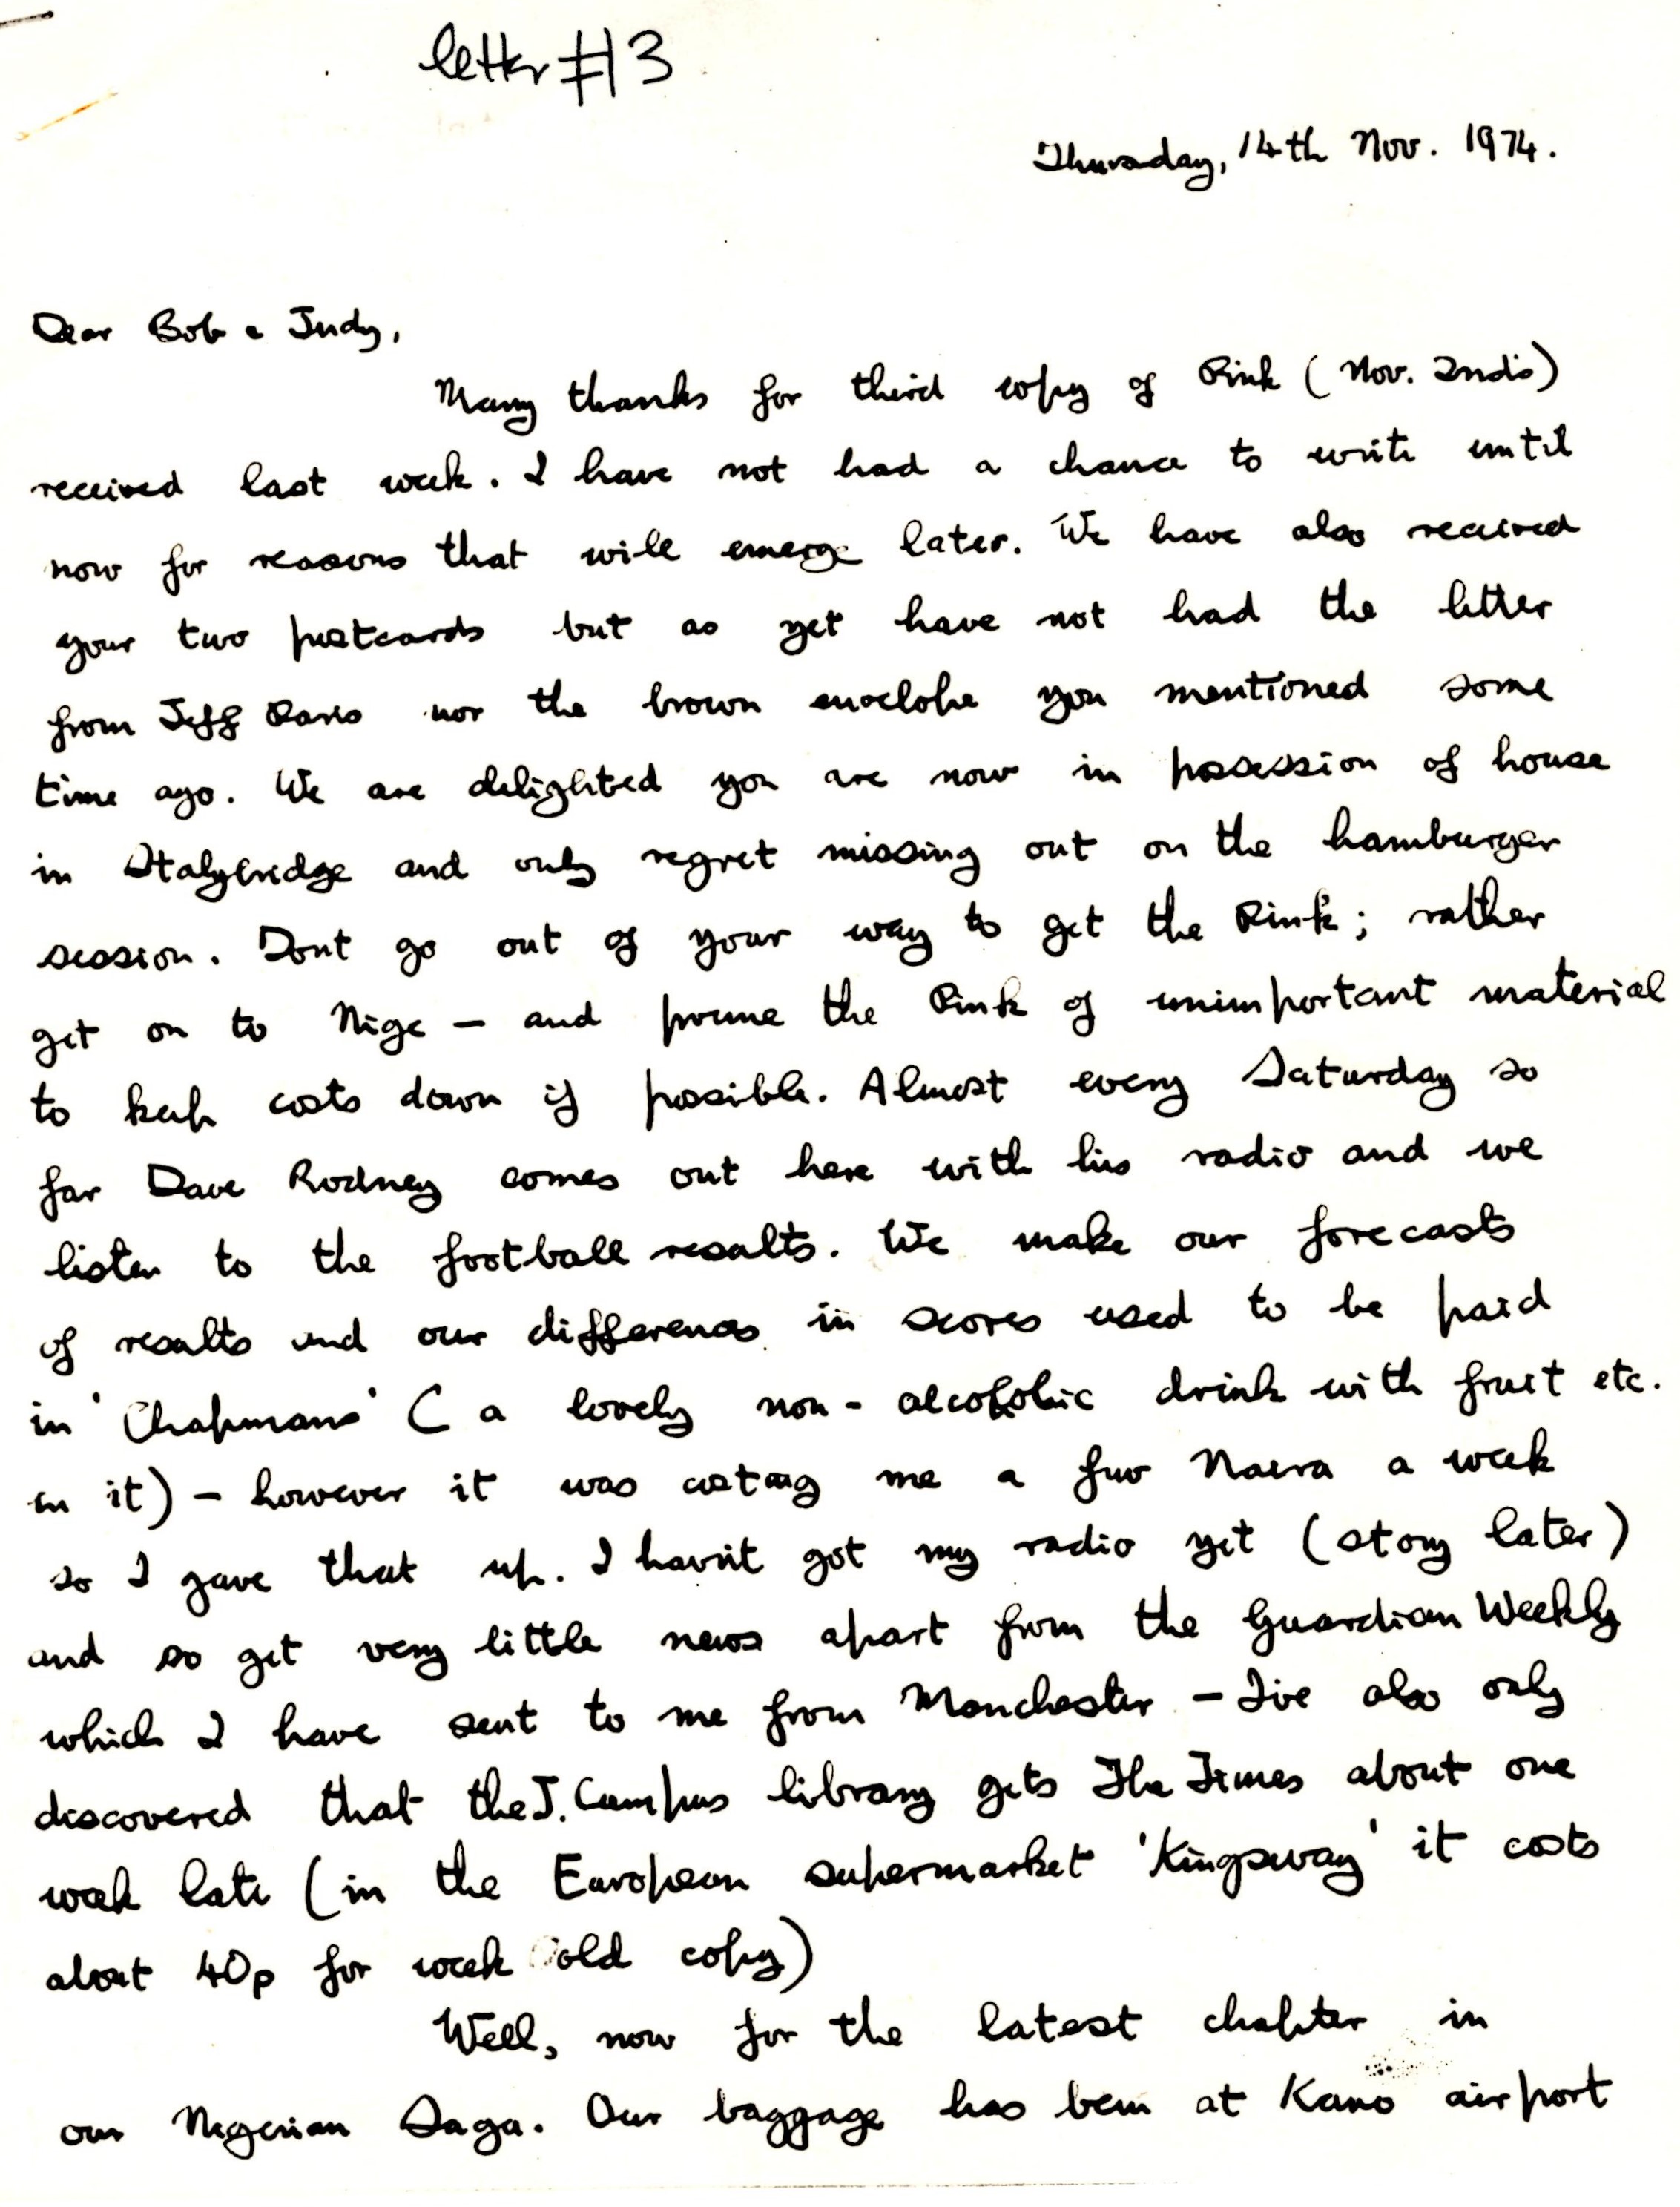 letter #3
Thursday, 14th Nov. 1974.
Dear Bob & Judy,
Many thanks for third copy of Pink (Nov. 2nd's)
received last week. I have not had a chance to write until
now for reasons that will emerge later. We have also received
your two postcards but as yet have not had the letter
from Jeff Davis nor the brown envelope you mentioned some
time ago. We are delighted you are now in possession of house
in Stalybridge and only regret missing out on the hamburger
session. Dont go out of your way to get the Pink; rather
get on to Nige - and prune the Pink of unimportant material
to keep costs down if possible. Almost every Saturday so
far Dave Rodney comes out here with his radio and we
listen to the football results. We make our forecasts
of results and our differences in scores used to be paid
in 'Chapmans' (a lovely non-alcoholic drink with fruit etc.
in it) - however it was costing me a few Naira a week
so I gave that up. I havn't got my radio yet (story later)
and so get very little news apart from the Guardian Weekly
which I have sent to me from Manchester - I've also only
discovered that the J. Campus library gets The Times about one
week late (in the European supermarket 'Kingsway' it costs
about 40p for week old copy)
Well, now for the latest chapter in
our Nigerian Saga. Our baggage has been at Kano airport